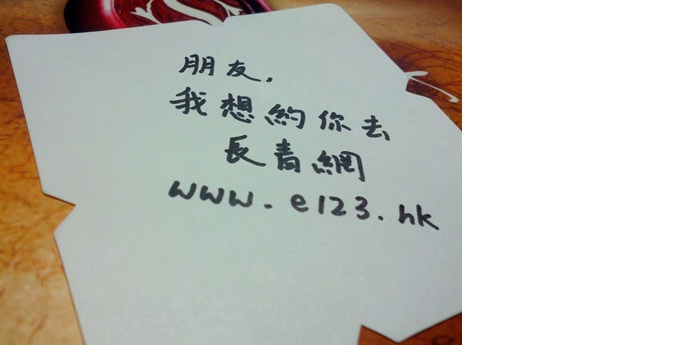 朋友，
我想約你去
長青網
www.e123.hk